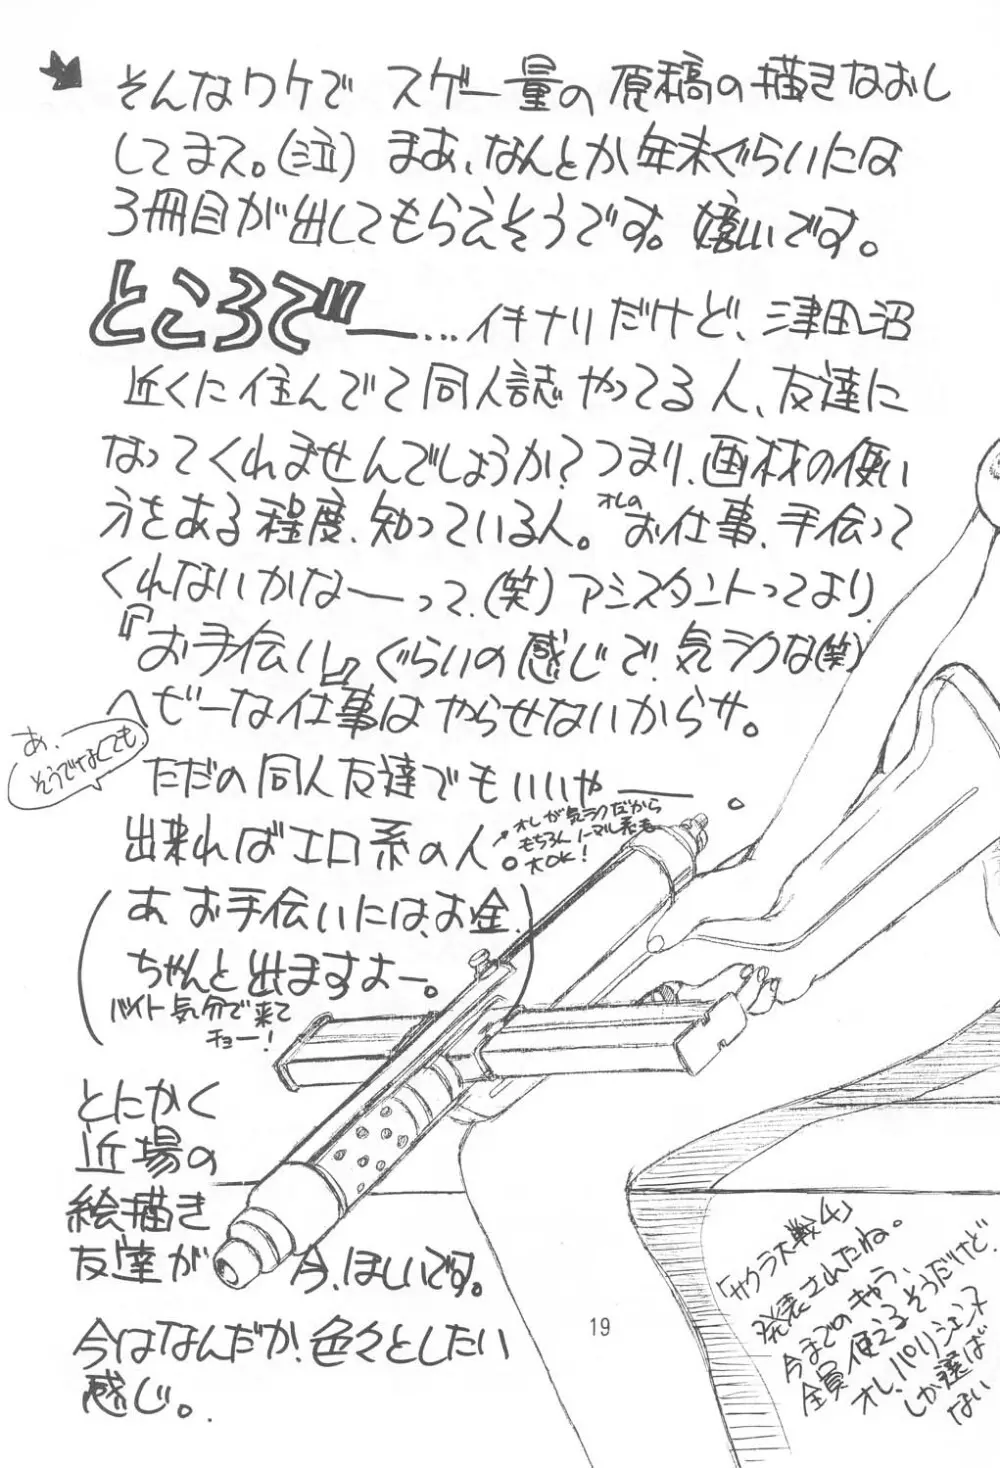 そんなワケで スゲー量の原稿の描きなおし
してまス。(泣) まあ、なんとか年末ぐらいには
3冊目が出してもらえそうです。嬉しいです。
ところでー...イキナリだけど、津田沼
近くに住んでて同人誌やってる人、友達に
なってくれませんでしょうか？つまり、画材の使い
方をある程度、知っている人。オレのお仕事、手伝って
くれないかなーって、(笑) アシスタントってより、
『お手伝い』ぐらいの感じで、気ラクな(笑)
ヘビーな仕事はやらせないからサ。
あ、ー
そうでなくても、
ただの同人友達でもいいやー。
出来ればエロ系の人。
オレが気ラクだから
もちろんノーマル系も
大OK！
(あ、お手伝いには、お金、
ちゃんと出ますよー。)
バイト気分で来て
チョー！
とにかく
近場の
絵描き
友達が 今、ほしいです。
今はなんだか、色々としたい
感じ。
「サクラ大戦4」
発表されたね。
今までのキャラ、
全員使えるそうだけど、
オレ、パリジェンヌ
しか選ば
ない
19